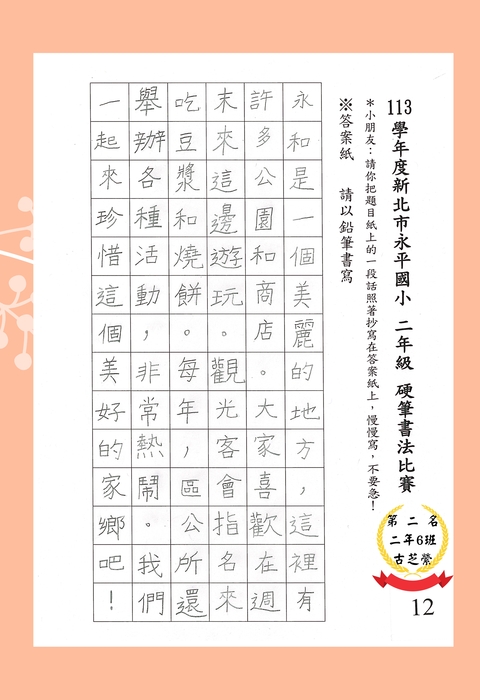 113學年度新北市永平國小 二年級 硬筆書法比賽
*小朋友：請你把題目紙上的一段話照著抄寫在答案紙上，慢慢寫，不要急！
※答案紙 請以鉛筆書寫
永和是一個美麗的地方，這裡有
許多公園和商店。大家喜歡在週
末來這邊遊玩。觀光客會指名來
吃豆漿和燒餅。每年，區公所還
舉辦各種活動，非常熱鬧。我們
一起來珍惜這個美好的家鄉吧！
第二名
二年6班
古芝縈
12